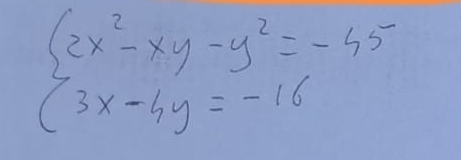 {2x² - xy - y² = - 45
3x - 4y = - 16